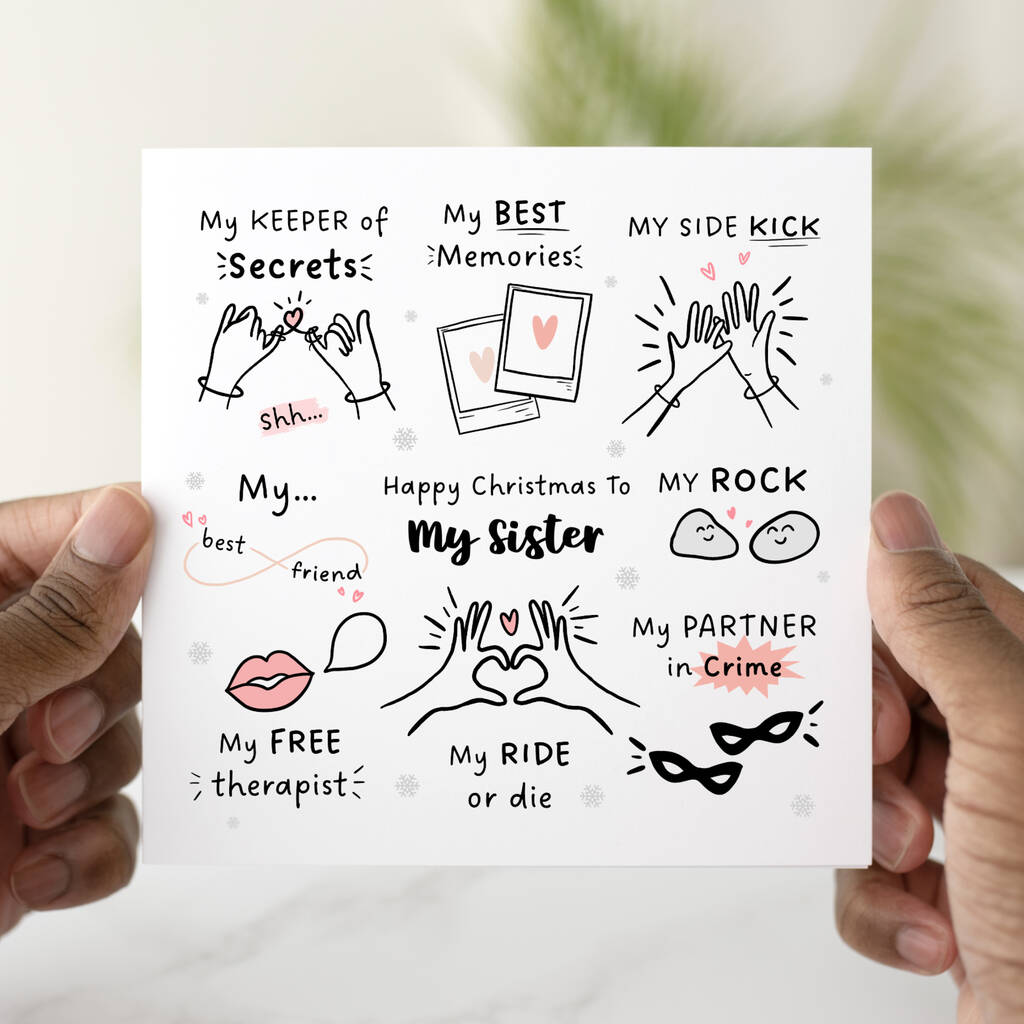 My KEEPER of
Secrets
shh...
My BEST
Memories
MY SIDE KICK
My...
best
friend
Happy Christmas To
My Sister
MY ROCK
My PARTNER
in Crime
My FREE
therapist
My RIDE
or die